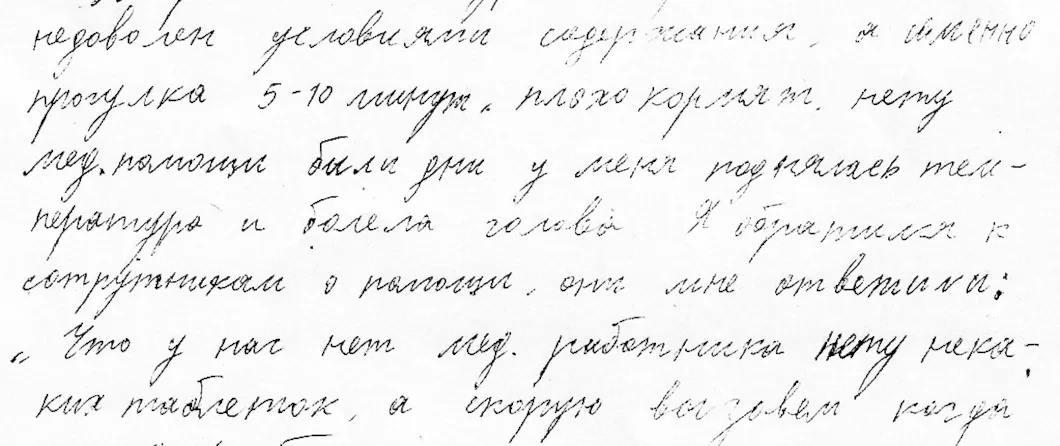 недоволен условиями содержания, а именно
прогулка 5-10 минут, плохо кормят, нету
мед. помощи были дни у меня поднялась тем-
пература и болела голова Я обратился к
сотрутникам о помощи, они мне ответили:
"Что у нас нет мед. работника нету нека-
ких таблеток, а скорую вызовем когда